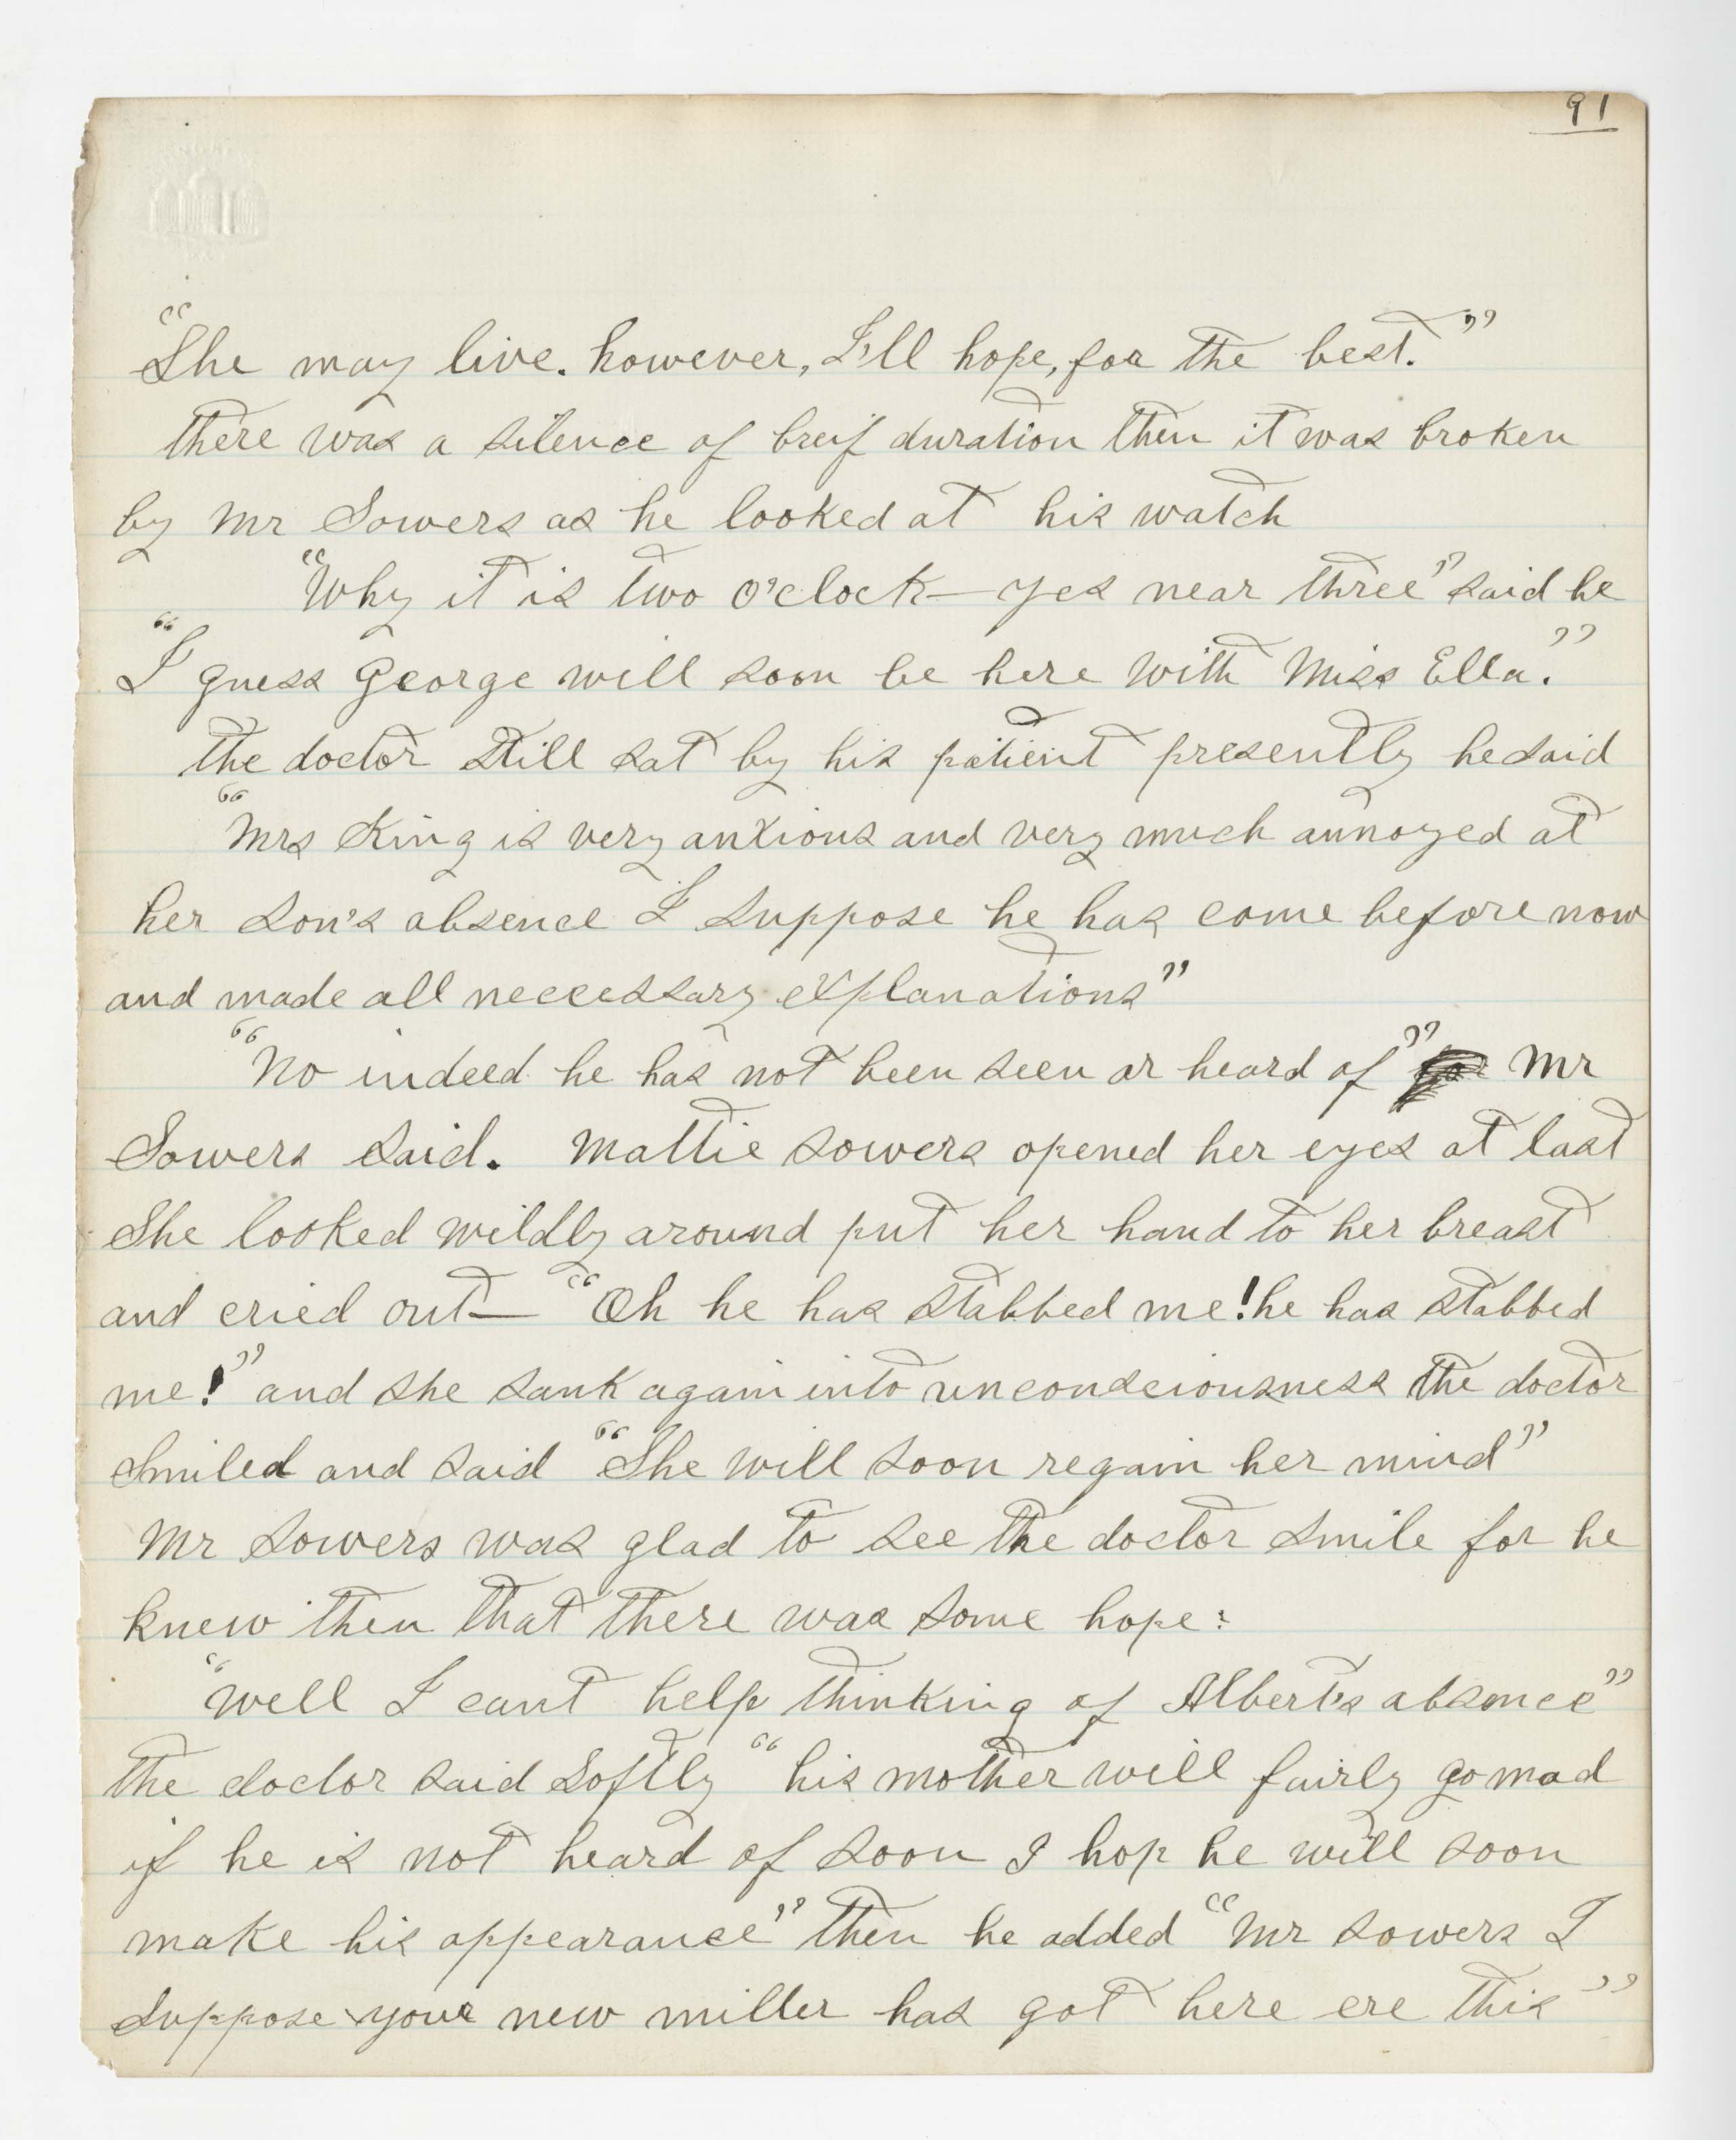 91
"She may live. however, I'll hope, for the best."
there was a silence of breif duration then it was broken
by Mr Sowers as he looked at his watch
"Why it is two o'clock—yes near three" said he
"I guess George will soon be here with Miss Ella."
the doctor still sat by his patient presently he said
"Mrs King is very anxious and very much annoyed at
her son's absence I suppose he has come before now
and made all neccessary explanations"
"No indeed he has not been seen or heard of" Mr
Sowers said. Mattie Sowers opened her eyes at last
She looked wildly around put her hand to her breast
and cried out— "Oh he has stabbed me! he has stabbed
me!" and she sank again into unconsciousness the doctor
smiled and said "She will soon regain her mind"
Mr Sowers was glad to see the doctor smile for he
knew then that there was some hope:
"Well I cant help thinking of Albert's absence"
the doctor said softly "his mother will fairly go mad
if he is not heard of soon I hop he will soon
make his appearance" then he added "Mr Sowers I
suppose your new miller has got here ere this"